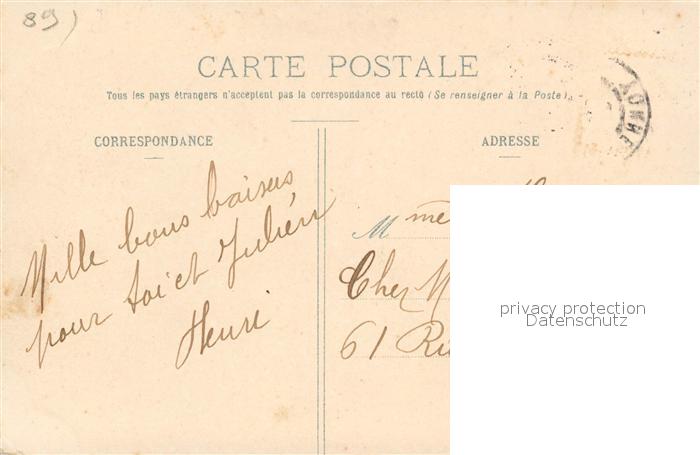 89)
CARTE POSTALE
Tous les pays étrangers n'acceptent pas la correspondance au recto (Se renseigner à la Poste).
CORRESPONDANCE
ADRESSE
Mille bons baisers
pour toi et Julien
Henri
Mme
Chez M
61 Ru
YONNE
privacy protection
Datenschutz